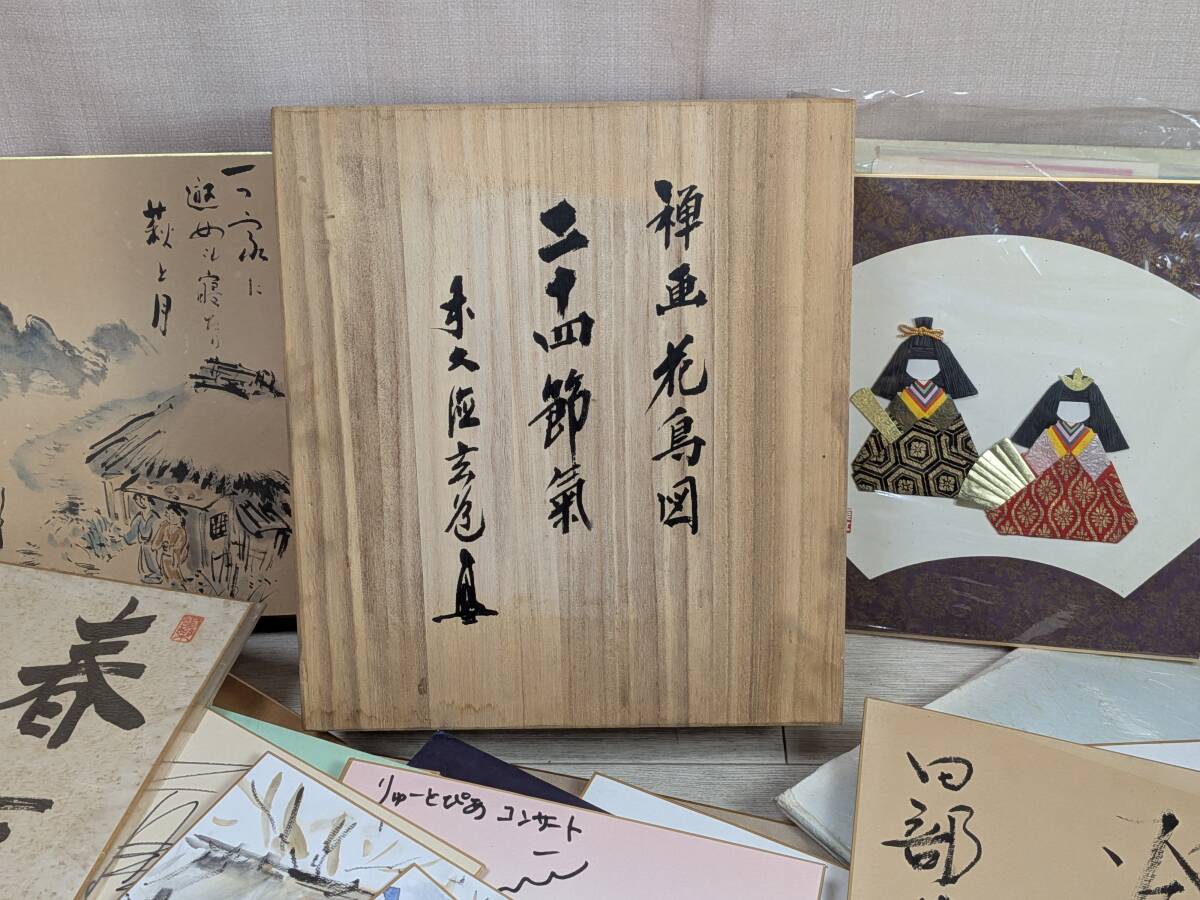 禅画花鳥図
二十四節氣
一つ家に
遊女も寝たり
萩と月
春
りゅーとぴあ コンサート
田部